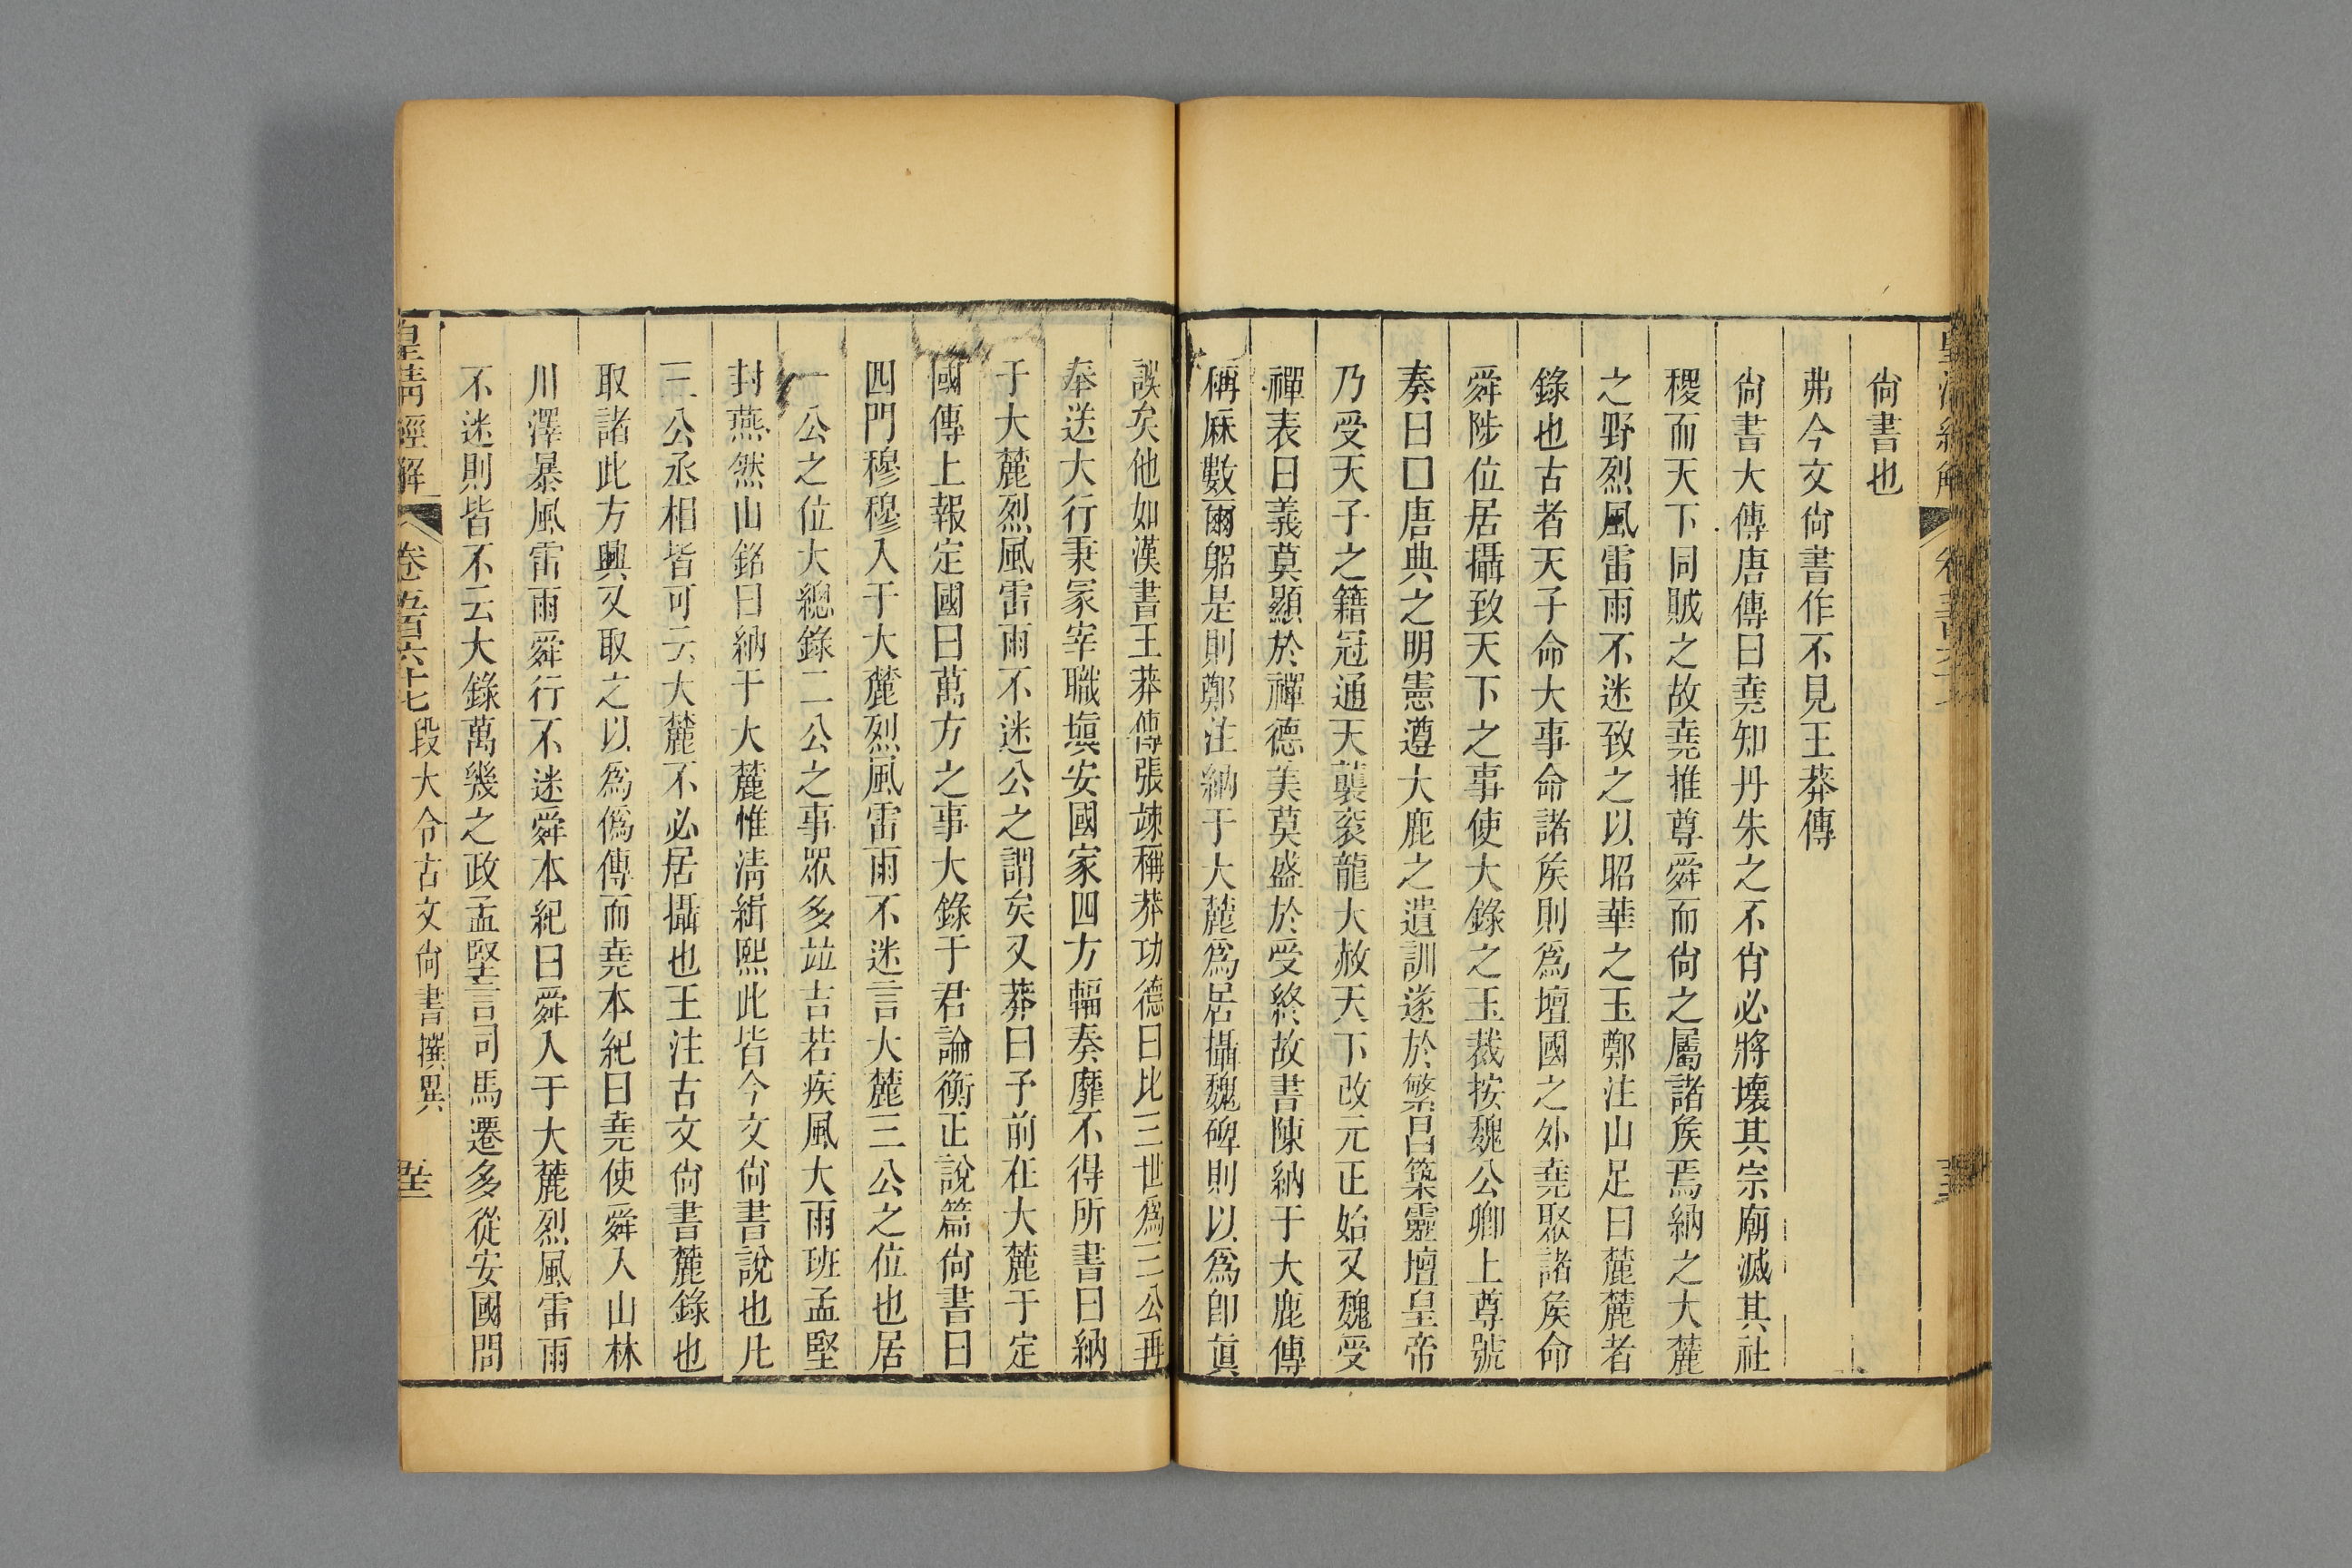 尙書也
弗今文尙書作不見王莽傳
尙書大傳唐傳曰堯知丹朱之不肖必將壞其宗廟滅其社
稷而天下同賊之故堯推尊舜而尙之屬諸矦焉納之大麓
之野烈風雷雨不迷致之以昭華之玉鄭注山足曰麓麓者
錄也古者天子命大事命諸矦則爲壇國之外堯聚諸矦命
舜陟位居攝致天下之事使大錄之玉裁按魏公卿上尊號
奏曰囗唐典之明憲遵大鹿之遺訓遂於繁昌築靈壇皇帝
乃受天子之籍冠通天襲衮龍大赦天下改元正始又魏受
禪表曰義莫顯於禪德美莫盛於受終故書陳納于大鹿傳
稱厤數爾躬是則鄭注納于大麓爲居攝魏碑則以爲卽眞
誤矣他如漢書王莽傳張竦稱莽功德曰比三世爲三公再
奉送大行秉冢宰職塡安國家四方輻奏靡不得所書曰納
于大麓烈風雷雨不迷公之謂矣又莽曰予前在大麓于定
國傳上報定國曰萬方之事大錄于君論衡正說篇尙書曰
四門穆穆入于大麓烈風雷雨不迷言大麓三公之位也居
一公之位大總錄二公之事眾多竝吉若疾風大雨班孟堅
封燕然山銘曰納于大麓惟淸緝熙此皆今文尙書說也凡
三公丞相皆可云大麓不必居攝也王注古文尙書麓錄也
取諸此方興又取之以爲僞傳而堯本紀曰堯使舜入山林
川澤暴風雷雨舜行不迷舜本紀曰舜入于大麓烈風雷雨
不迷則皆不云大錄萬幾之政孟堅言司馬遷多從安國問
皇淸經解 卷五百六十七 段大令古文尙書撰異